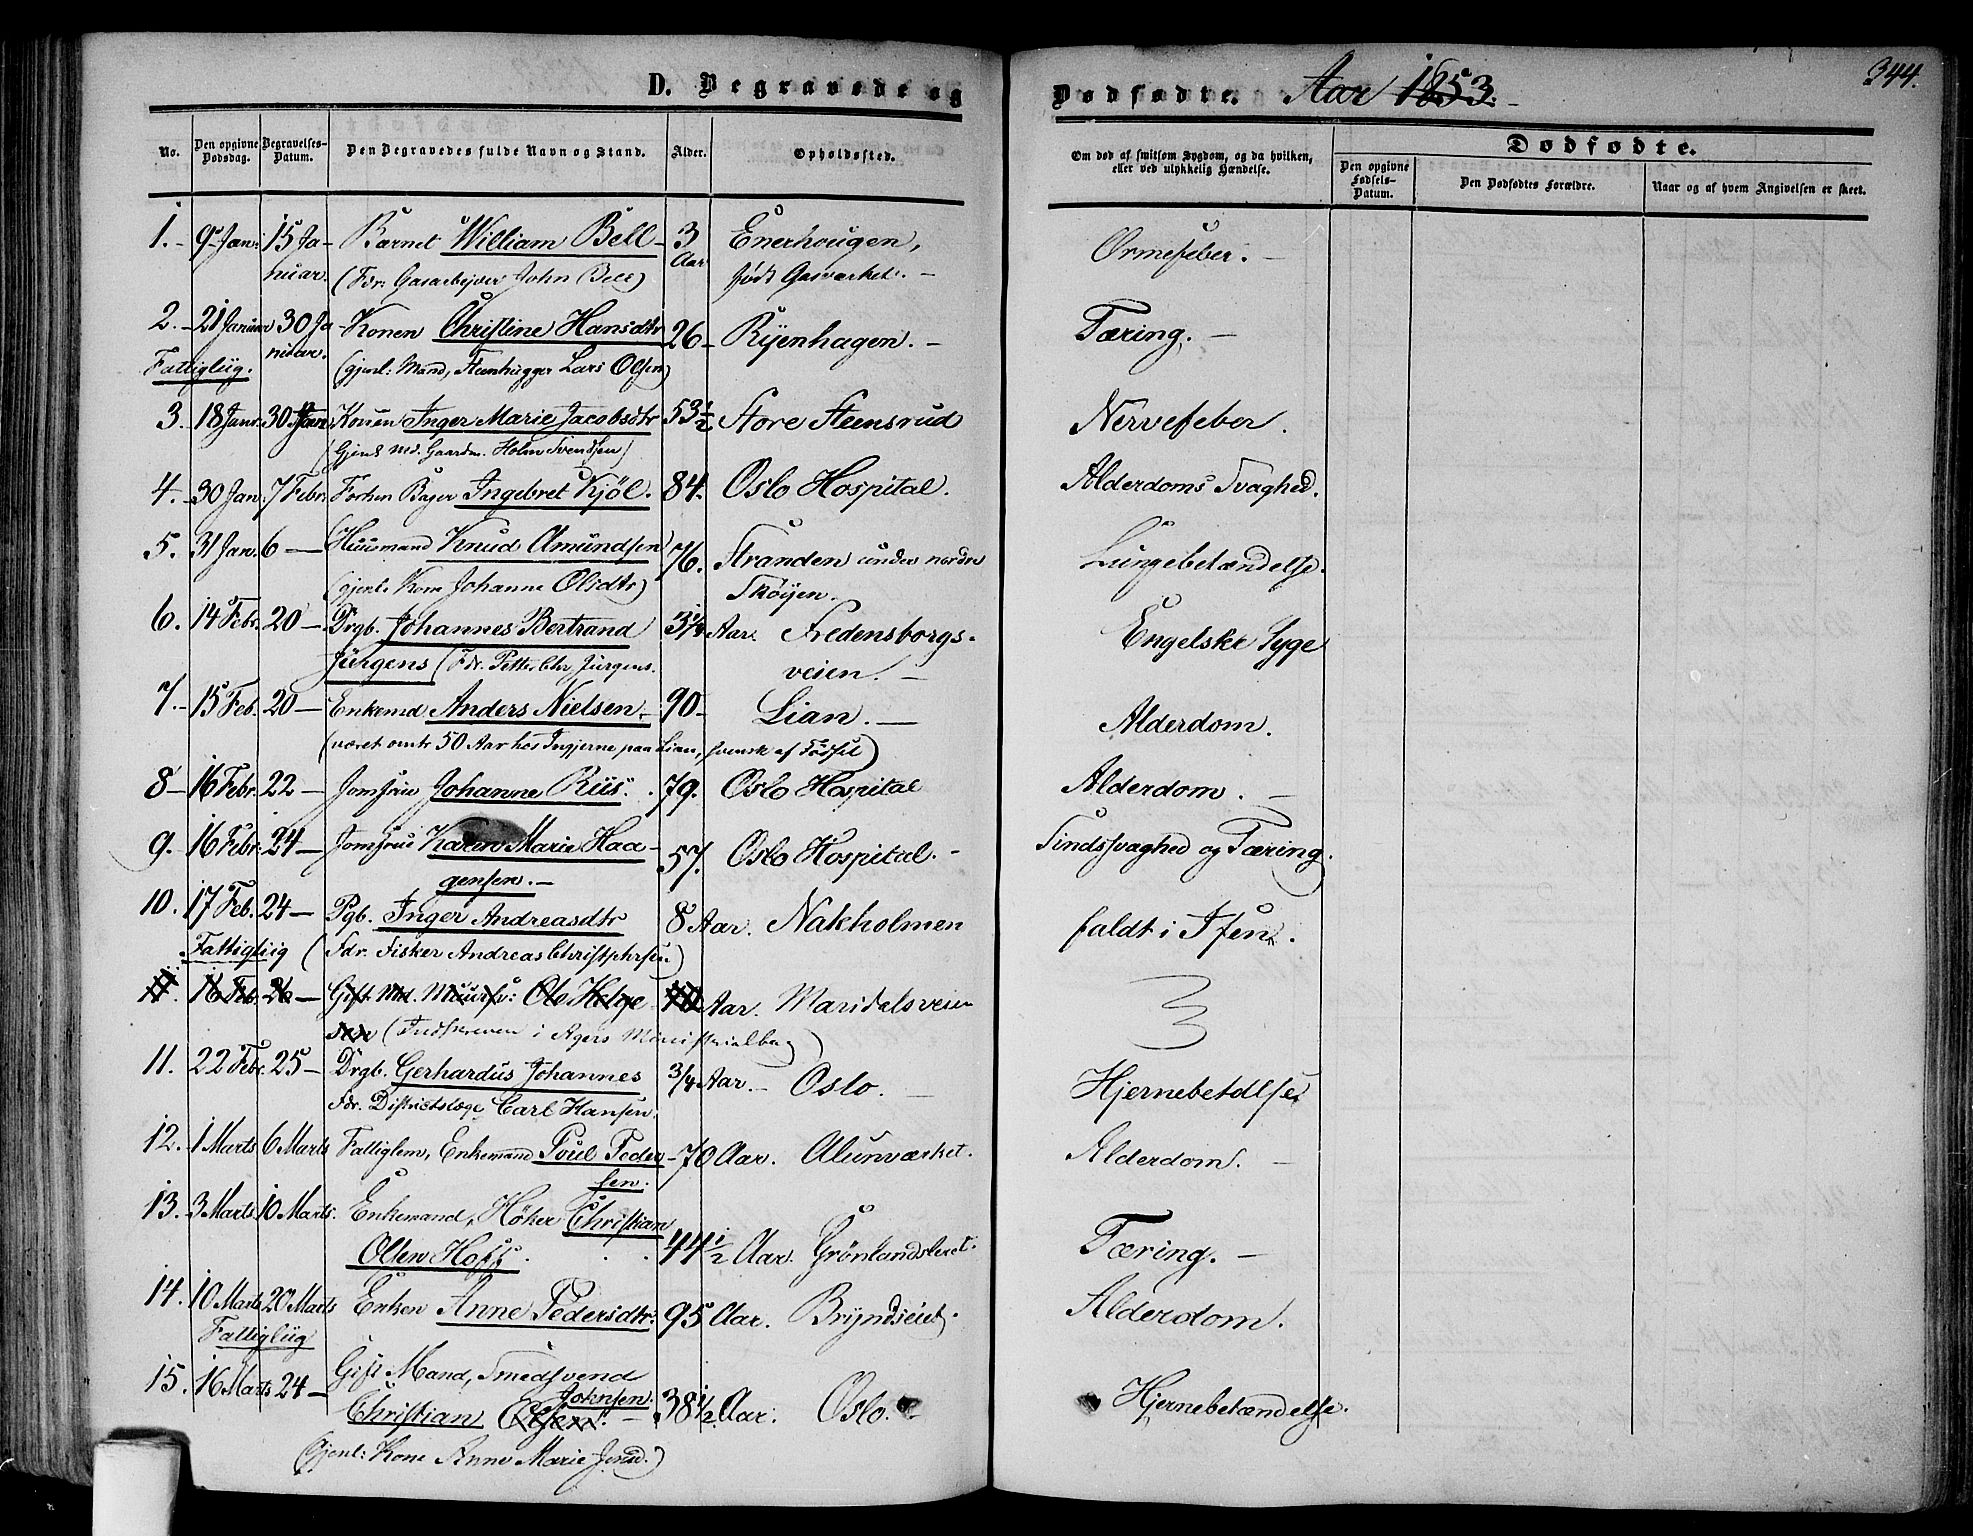 D. Begravede og Dødfødte. Aar 1853.
344.
No. Den opgivne Dødsdag. Begravelses-Datum. Den Begravedes fulde Navn og Stand. Alder. Opholdssted. Om død af smitsom Sygdom, og da hvilken, eller ved ulykkelig Hændelse. Dødfødte. Den opgivne Fødsels-Datum. Den Dødfødtes Forældre. Naar og af hvem Angivelsen er skeet.
1. 9 Jan: 15 Ja- Barnet William Bell 3 Enerhougen, Ormefeber.
nuar. (Fdr. Gasarbejder John Bell) Aar født Gasværket.
2. 21 Januar 30 Ja- Konen Christine Hansdtr 26 Ryenhagen. Tæring.
Fattiglig. nuar. (gjenl: Mand, Steenhugger Lars Olsen)
3. 18 Janr. 30 Janr. Konen Inger Marie Jacobsdtr 53 1/2 Store Steensrud Nervefeber.
(Gjenl Md. Gaardm. Holm Svendsen)
4. 30 Jan. 7 Febr. Forhen Bager Ingebret Kjøl. 84. Oslo Hospital. Alderdoms Svaghed.
5. 31 Jan. 6 Huusmand Knud Amundsen 76. Stranden under nordre Lungebetændelse.
(gjenl. Kone Johanne Olsdtr) Skøyen.
6. 14 Febr. 20 Drgb. Johannes Bertrand 3 1/4 Aar. Fredensborgs- Engelske Syge
Jürgens (Fdr. Petter Chr Jürgens. veien.
7. 15 Feb. 20 Enkemd Anders Nielsen. 90 Lian. Alderdom.
(været omtr 50 Aar hos Ingjerne paa Lian, svensk af Fødsel)
8 16 Febr. 22 Jomfru Johanne Riis. 79. Oslo Hospital Alderdom.
9. 16 Febr. 24 Jomfru Karen Marie Haa- 57. Oslo Hospital. Sindssvaghed og Tæring.
gensen.
10. 17 Feb. 24 Pgb. Inger Andreasdtr 8 Aar. Nakholmen faldt i Isen.
Fattiglig (Fdr. Fisker Andreas Christphersen)
11. 16 Feb. 26 Gift Md. Muursv: Ole Helge Aar. Maridalsveien
sen (Indskreven i Agers Ministerialbog)
11. 22 Febr. 25 Drgb. Gerhardus Johannes 3/4 Aar. Oslo. Hjernebetdlse.
Fdr. Districtslæge Carl Hansen.
12. 1 Marts 6 Marts Fattiglem, Enkemand Poul Peder 70 Aar. Alunværket. Alderdom.
sen.
13. 3 Marts 10 Marts. Enkemand, Høker Christian
Olsen Hoff. 44 1/2 Aar. Grønlandsleret. Tæring.
14. 10 Marts 20 Marts Enken Anne Pedersdtr. 95 Aar. Bryndseiet. Alderdom.
Fattiglig
15. 16 Marts 24 Gift Mand, Smedsvend
Johnsen.
Christian Olsen. 38 1/2 Aar. Oslo. Hjernebetændelse.
(Gjenl: Kone Anne Marie Jensd.)